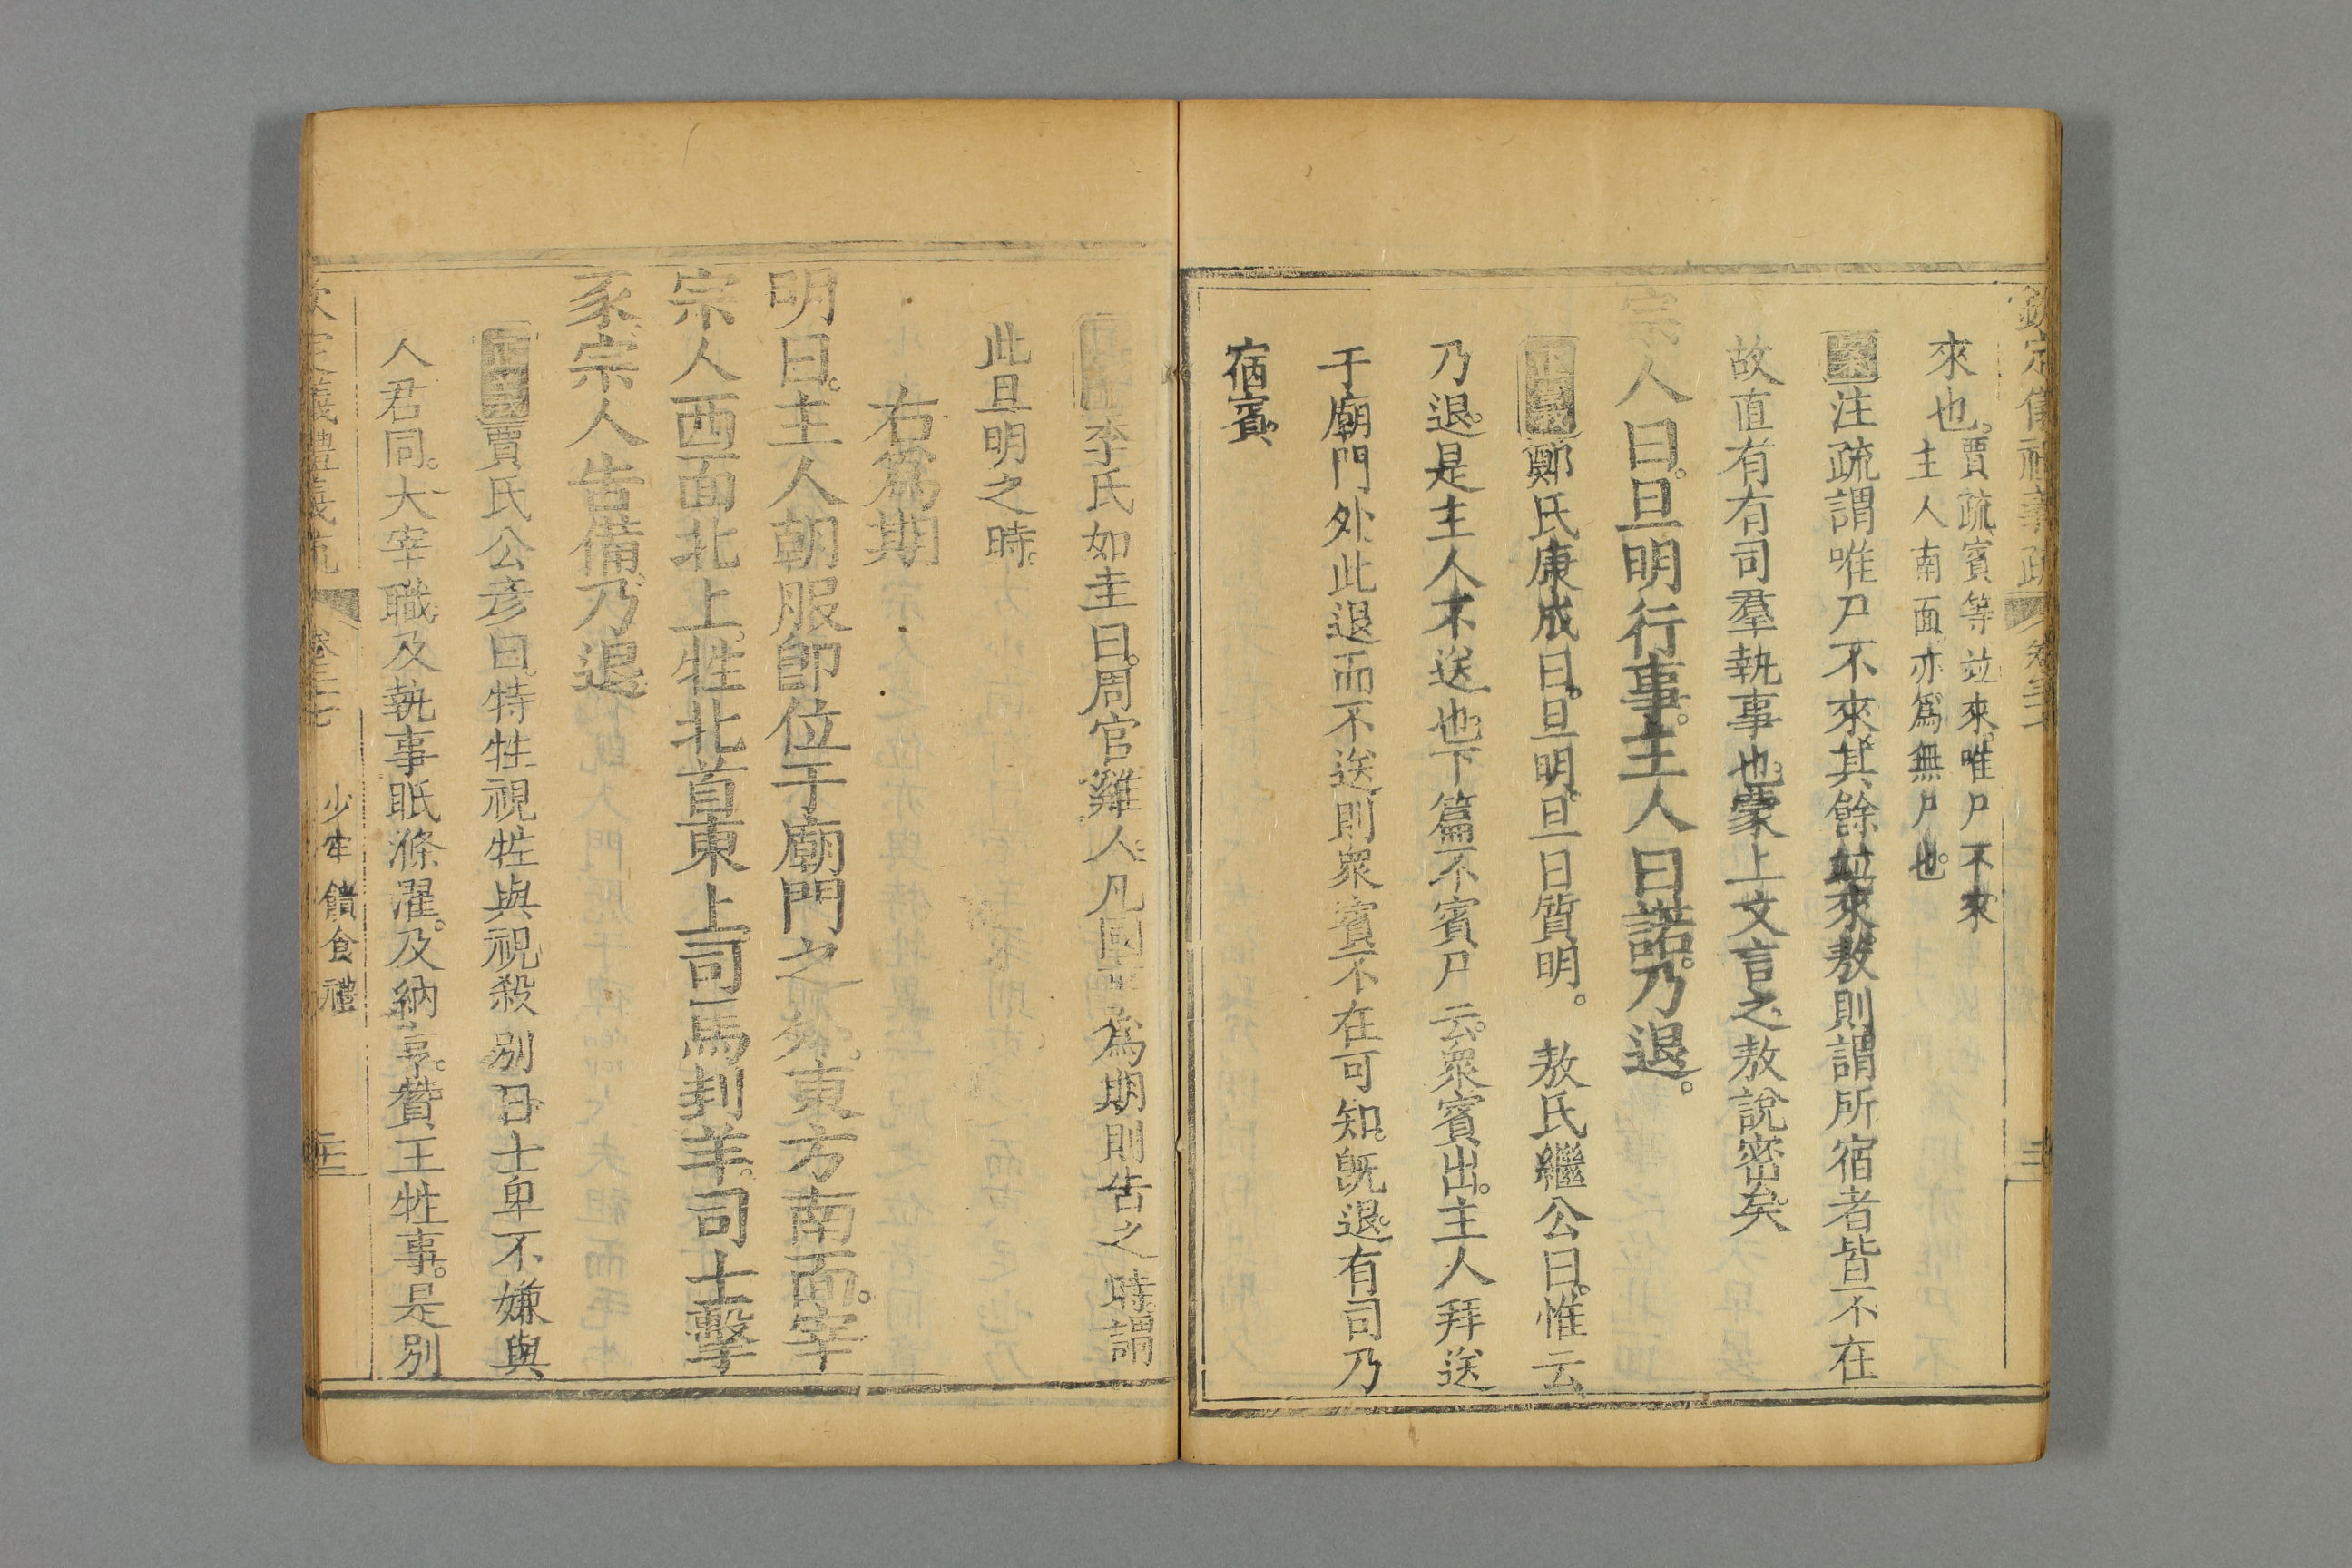 欽定儀禮義疏 卷三十七
來也賈疏賓等竝來唯尸不來
主人南面亦爲無尸也
案注疏謂唯尸不來其餘竝來敖則謂所宿者皆不在
故直有有司羣執事也蒙上文言之敖說密矣
宗人曰旦明行事主人曰諾乃退
正義鄭氏康成曰旦明旦日質明 敖氏繼公曰惟云
乃退是主人不送也下篇不賓尸云眾賓出主人拜送
于廟門外此退而不送則眾賓不在可知旣退有司乃
宿賓
李氏如圭曰周官雞人凡國事爲期則告之時謂
此旦明之時
右爲期
明日主人朝服卽位于廟門之外東方南面宰
宗人西面北上牲北首東上司馬刲羊司士擊
豕宗人告備乃退
正義賈氏公彦曰特牲視牲與視殺別日士卑不嫌與
人君同大宰職及執事眂滌濯及納亨贊王牲事是別
欽定儀禮義疏 卷三十七 少牢饋食禮